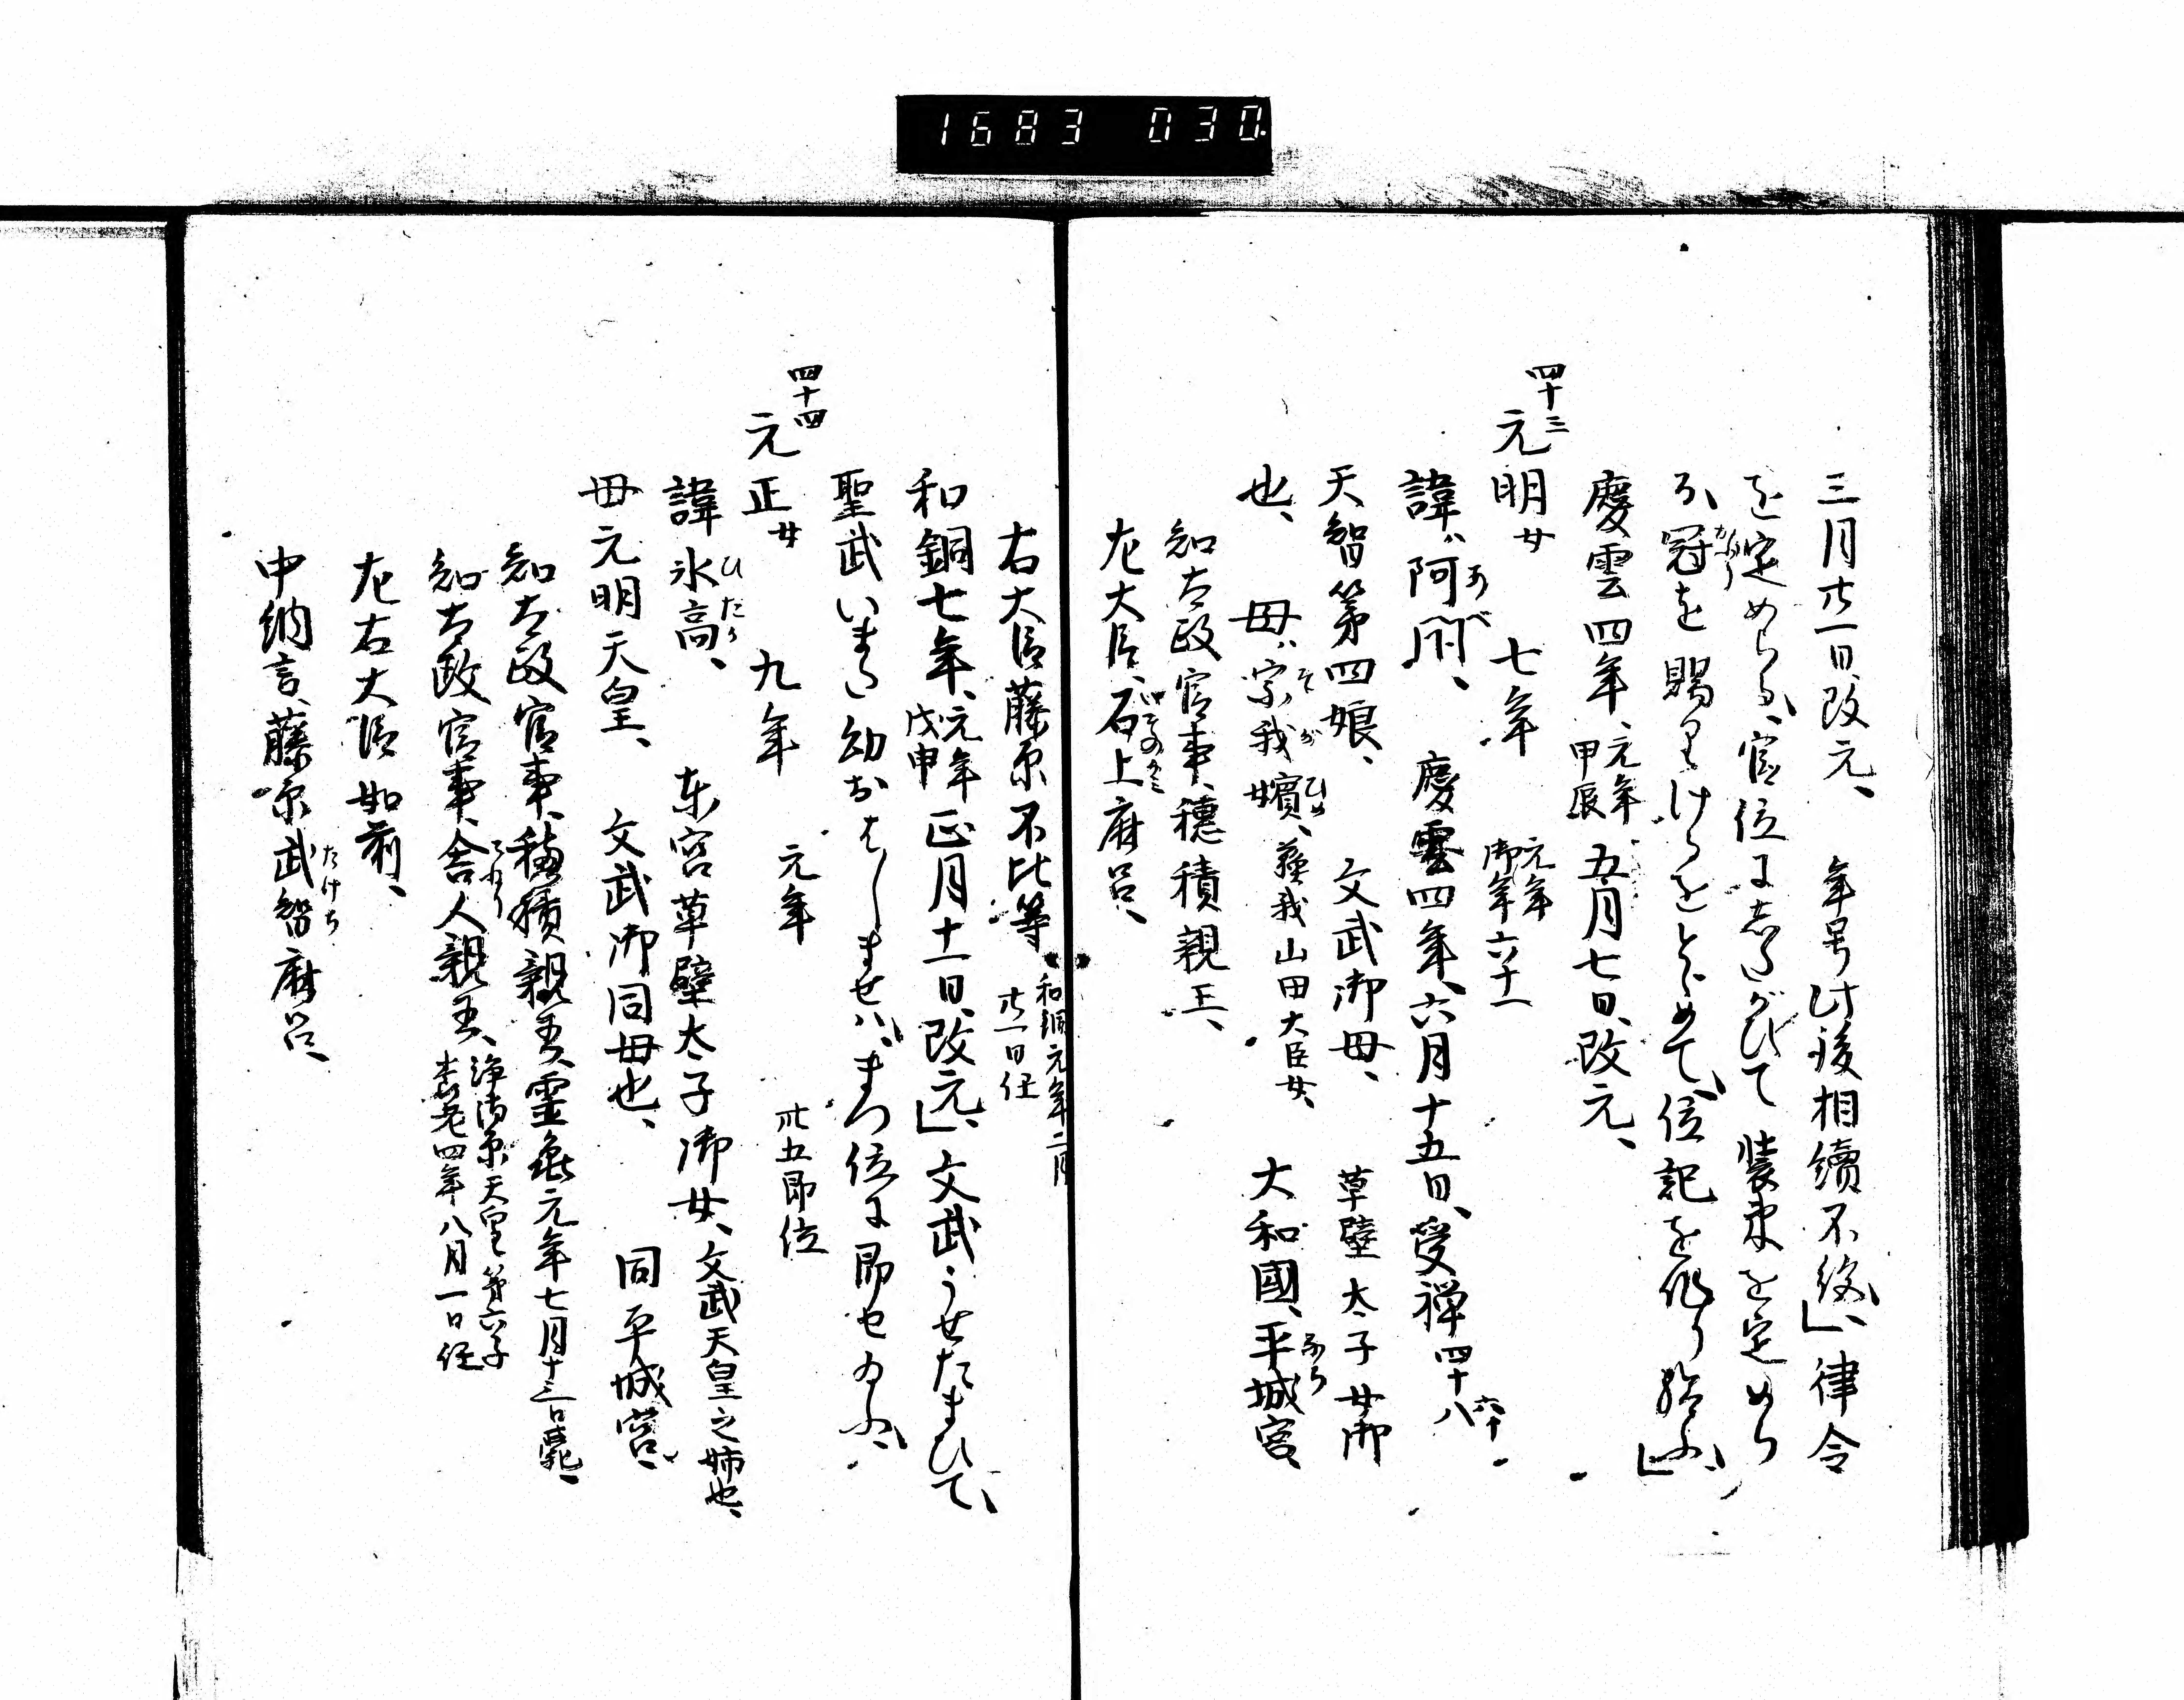 1683 030.
三月廿一日、改元、 年号此後相續不絶」、律令
を定めらる、官位に志たがひて 装束を定めら
る、冠を賜りけるをとゞめて、位記を作り給ふ」
慶雲四年、元年甲辰 五月七日、改元、
四十三
元明女 七年 元年御年六十一
諱ハ阿閇、 慶雲四年、六月十五日、受禅 四十八 六十
あべ
天智第四娘、 文武御母、 草壁太子女御
也、 母ハ宗我嬪、蘓我山田大臣女、 大和國、平城宮、
そがひめ なら
知太政官事、穂積親王、
左大臣、石上麻呂、
右大臣藤原不比等、和銅元年二月廿一日任
和銅七年、元年戊申 正月十一日、改元」、文武うせたまひて、
聖武いまだ幼おはしませバ、まづ位に即せ給ふ、
四十四
元正女 九年 元年 卅五即位
諱氷高、 東宮草壁太子御女、文武天皇之姉也、
ひたか
母元明天皇、 文武御同母也、 同平城宮、
知太政官事、穂積親王、霊亀元年七月十三日薨、
知太政官事、舎人親王、浄御原天皇第六子 養老四年八月一日任
左右大臣如前、
中納言、藤原武智麻呂、
たけち